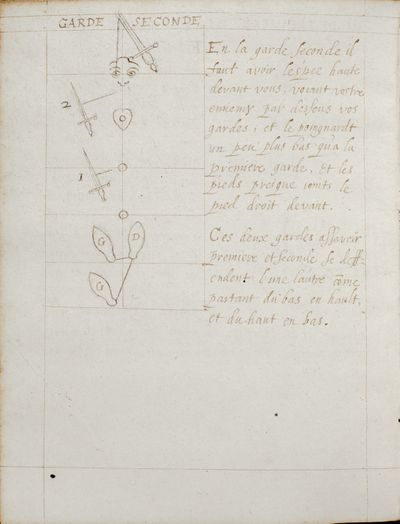 GARDE SECONDE
2
1
G D
G
En la garde seconde il
faut avoir lespee haute
devant vous, voiant vostre
ennemy par dessus vos
gardes, et le poingnardt
un peu plus bas qu'a la
premiere garde, Et les
pieds presque ioints le
pied droit devant.
Ces deux gardes assavoir
premiere et seconde se deff-
endent l'une lautre cōme
partant du bas en hault,
et du haut en bas.